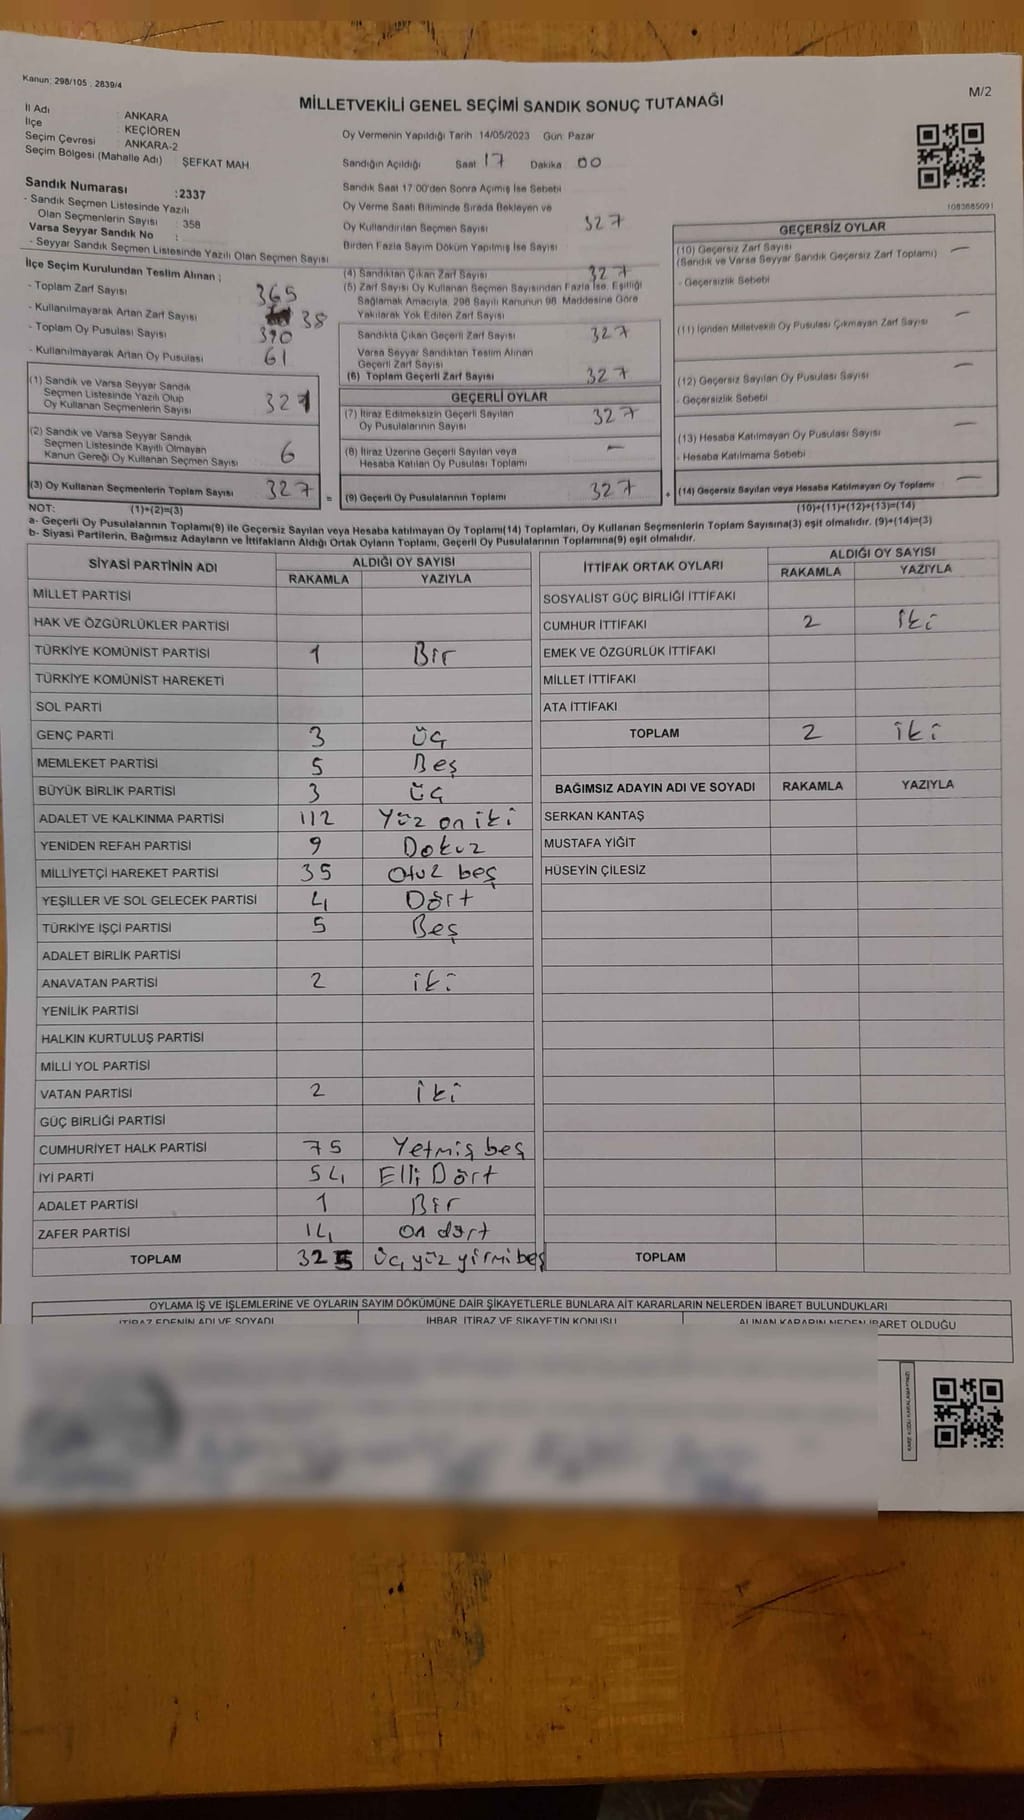 Kanun: 298/105 , 2839/4
M/2
MİLLETVEKİLİ GENEL SEÇİMİ SANDIK SONUÇ TUTANAĞI
İl Adı : ANKARA
İlçe : KEÇİÖREN
Seçim Çevresi : ANKARA-2
Seçim Bölgesi (Mahalle Adı) : ŞEFKAT MAH.
Sandık Numarası :2337
- Sandık Seçmen Listesinde Yazılı
Olan Seçmenlerin Sayısı : 358
Varsa Seyyar Sandık No :
- Seyyar Sandık Seçmen Listesinde Yazılı Olan Seçmen Sayısı
İlçe Seçim Kurulundan Teslim Alınan ;
- Toplam Zarf Sayısı 365
- Kullanılmayarak Artan Zarf Sayısı 38
- Toplam Oy Pusulası Sayısı 390
- Kullanılmayarak Artan Oy Pusulası 61
(1) Sandık ve Varsa Seyyar Sandık
Seçmen Listesinde Yazılı Olup
Oy Kullanan Seçmenlerin Sayısı 321
(2) Sandık ve Varsa Seyyar Sandık
Seçmen Listesinde Kayıtlı Olmayan
Kanun Gereği Oy Kullanan Seçmen Sayısı 6
(3) Oy Kullanan Seçmenlerin Toplam Sayısı 327 =
Oy Vermenin Yapıldığı Tarih 14/05/2023 Gün: Pazar
Sandığın Açıldığı Saat 17 Dakika 00
Sandık Saat 17:00'den Sonra Açımış İse Sebebi
Oy Verme Saati Bitiminde Sırada Bekleyen ve
Oy Kullandırılan Seçmen Sayısı 327
Birden Fazla Sayım Döküm Yapılmış İse Sayısı
(4) Sandıktan Çıkan Zarf Sayısı 327
(5) Zarf Sayısı Oy Kullanan Seçmen Sayısından Fazla İse, Eşitliği
Sağlamak Amacıyla, 298 Sayılı Kanunun 98. Maddesine Göre
Yakılarak Yok Edilen Zarf Sayısı
Sandıkta Çıkan Geçerli Zarf Sayısı 327
Varsa Seyyar Sandıktan Teslim Alınan
Geçerli Zarf Sayısı
(6) Toplam Geçerli Zarf Sayısı 327
GEÇERLİ OYLAR
(7) İtiraz Edilmeksizin Geçerli Sayılan
Oy Pusulalarının Sayısı 327
(8) İtiraz Üzerine Geçerli Sayılan veya
Hesaba Katılan Oy Pusulası Toplamı —
(9) Geçerli Oy Pusulalarının Toplamı 327 +
1083685091
GEÇERSİZ OYLAR
(10) Geçersiz Zarf Sayısı —
(Sandık ve Varsa Seyyar Sandık Geçersiz Zarf Toplamı)
- Geçersizlik Sebebi
(11) İçinden Milletvekili Oy Pusulası Çıkmayan Zarf Sayısı —
(12) Geçersiz Sayılan Oy Pusulası Sayısı —
- Geçersizlik Sebebi
(13) Hesaba Katılmayan Oy Pusulası Sayısı —
- Hesaba Katılmama Sebebi
(14) Geçersiz Sayılan veya Hesaba Katılmayan Oy Toplamı —
NOT: (1)+(2)=(3) (10)+(11)+(12)+(13)=(14)
a- Geçerli Oy Pusulalarının Toplamı(9) ile Geçersiz Sayılan veya Hesaba katılmayan Oy Toplamı(14) Toplamları, Oy Kullanan Seçmenlerin Toplam Sayısına(3) eşit olmalıdır. (9)+(14)=(3)
b- Siyasi Partilerin, Bağımsız Adayların ve İttifakların Aldığı Ortak Oyların Toplamı, Geçerli Oy Pusulalarının Toplamına(9) eşit olmalıdır.
SİYASİ PARTİNİN ADI ALDIĞI OY SAYISI
RAKAMLA YAZIYLA
MİLLET PARTİSİ
HAK VE ÖZGÜRLÜKLER PARTİSİ
TÜRKİYE KOMÜNİST PARTİSİ 1 Bir
TÜRKİYE KOMÜNİST HAREKETİ
SOL PARTİ
GENÇ PARTİ 3 üç
MEMLEKET PARTİSİ 5 Beş
BÜYÜK BİRLİK PARTİSİ 3 üç
ADALET VE KALKINMA PARTİSİ 112 Yüz on iki
YENİDEN REFAH PARTİSİ 9 Dokuz
MİLLİYETÇİ HAREKET PARTİSİ 35 Otuz beş
YEŞİLLER VE SOL GELECEK PARTİSİ 4 Dört
TÜRKİYE İŞÇİ PARTİSİ 5 Beş
ADALET BİRLİK PARTİSİ
ANAVATAN PARTİSİ 2 iki
YENİLİK PARTİSİ
HALKIN KURTULUŞ PARTİSİ
MİLLİ YOL PARTİSİ
VATAN PARTİSİ 2 iki
GÜÇ BİRLİĞİ PARTİSİ
CUMHURİYET HALK PARTİSİ 75 Yetmiş beş
İYİ PARTİ 54 Elli Dört
ADALET PARTİSİ 1 Bir
ZAFER PARTİSİ 14 on dört
TOPLAM 325 üç yüz yirmi beş
İTTİFAK ORTAK OYLARI ALDIĞI OY SAYISI
RAKAMLA YAZIYLA
SOSYALİST GÜÇ BİRLİĞİ İTTİFAKI
CUMHUR İTTİFAKI 2 iki
EMEK VE ÖZGÜRLÜK İTTİFAKI
MİLLET İTTİFAKI
ATA İTTİFAKI
TOPLAM 2 iki
BAĞIMSIZ ADAYIN ADI VE SOYADI RAKAMLA YAZIYLA
SERKAN KANTAŞ
MUSTAFA YİĞİT
HÜSEYİN ÇİLESİZ
TOPLAM
OYLAMA İŞ VE İŞLEMLERİNE VE OYLARIN SAYIM DÖKÜMÜNE DAİR ŞİKAYETLERLE BUNLARA AİT KARARLARIN NELERDEN İBARET BULUNDUKLARI
İTİRAZ EDENİN ADI VE SOYADI İHBAR, İTİRAZ VE ŞİKAYETİN KONUSU ALINAN KARARIN NEDEN İBARET OLDUĞU